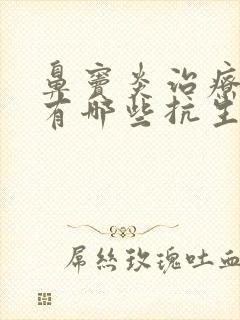 鼻窦炎治療
有哪些抗生
屌絲玫瑰吐血